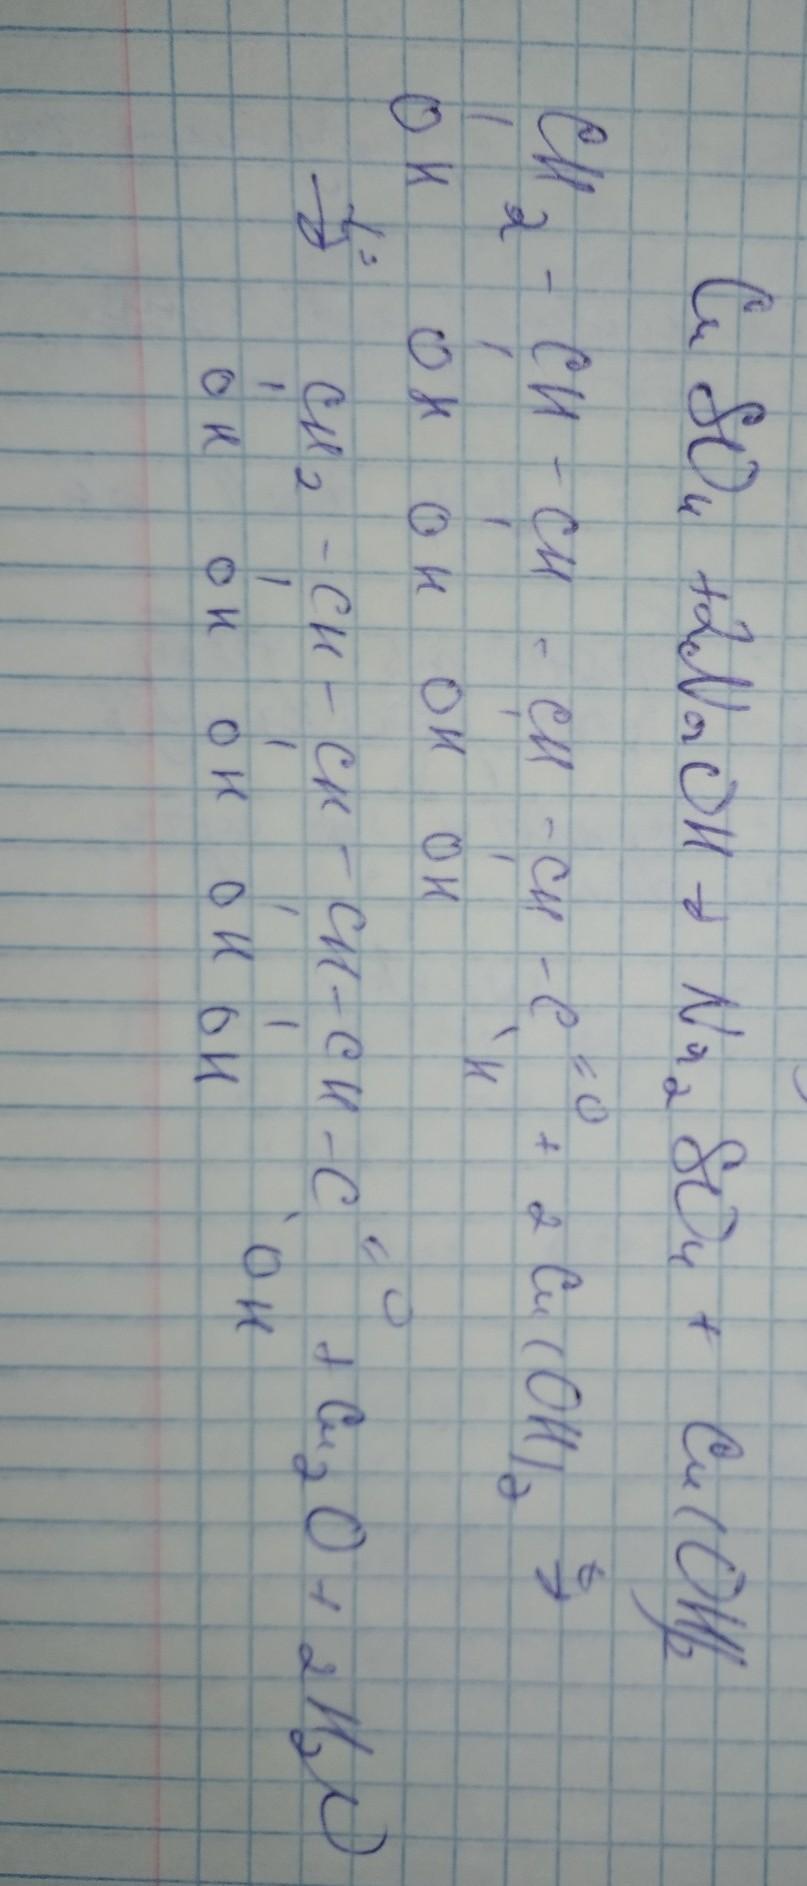 CuSO4 + 2NaOH → Na2SO4 + Cu(OH)2
CH2 - CH - CH - CH - CH - C = O + 2Cu(OH)2 t° →
OH OH OH OH OH H
t° → CH2 - CH - CH - CH - CH - C = O + Cu2O + 2H2O
OH OH OH OH OH OH